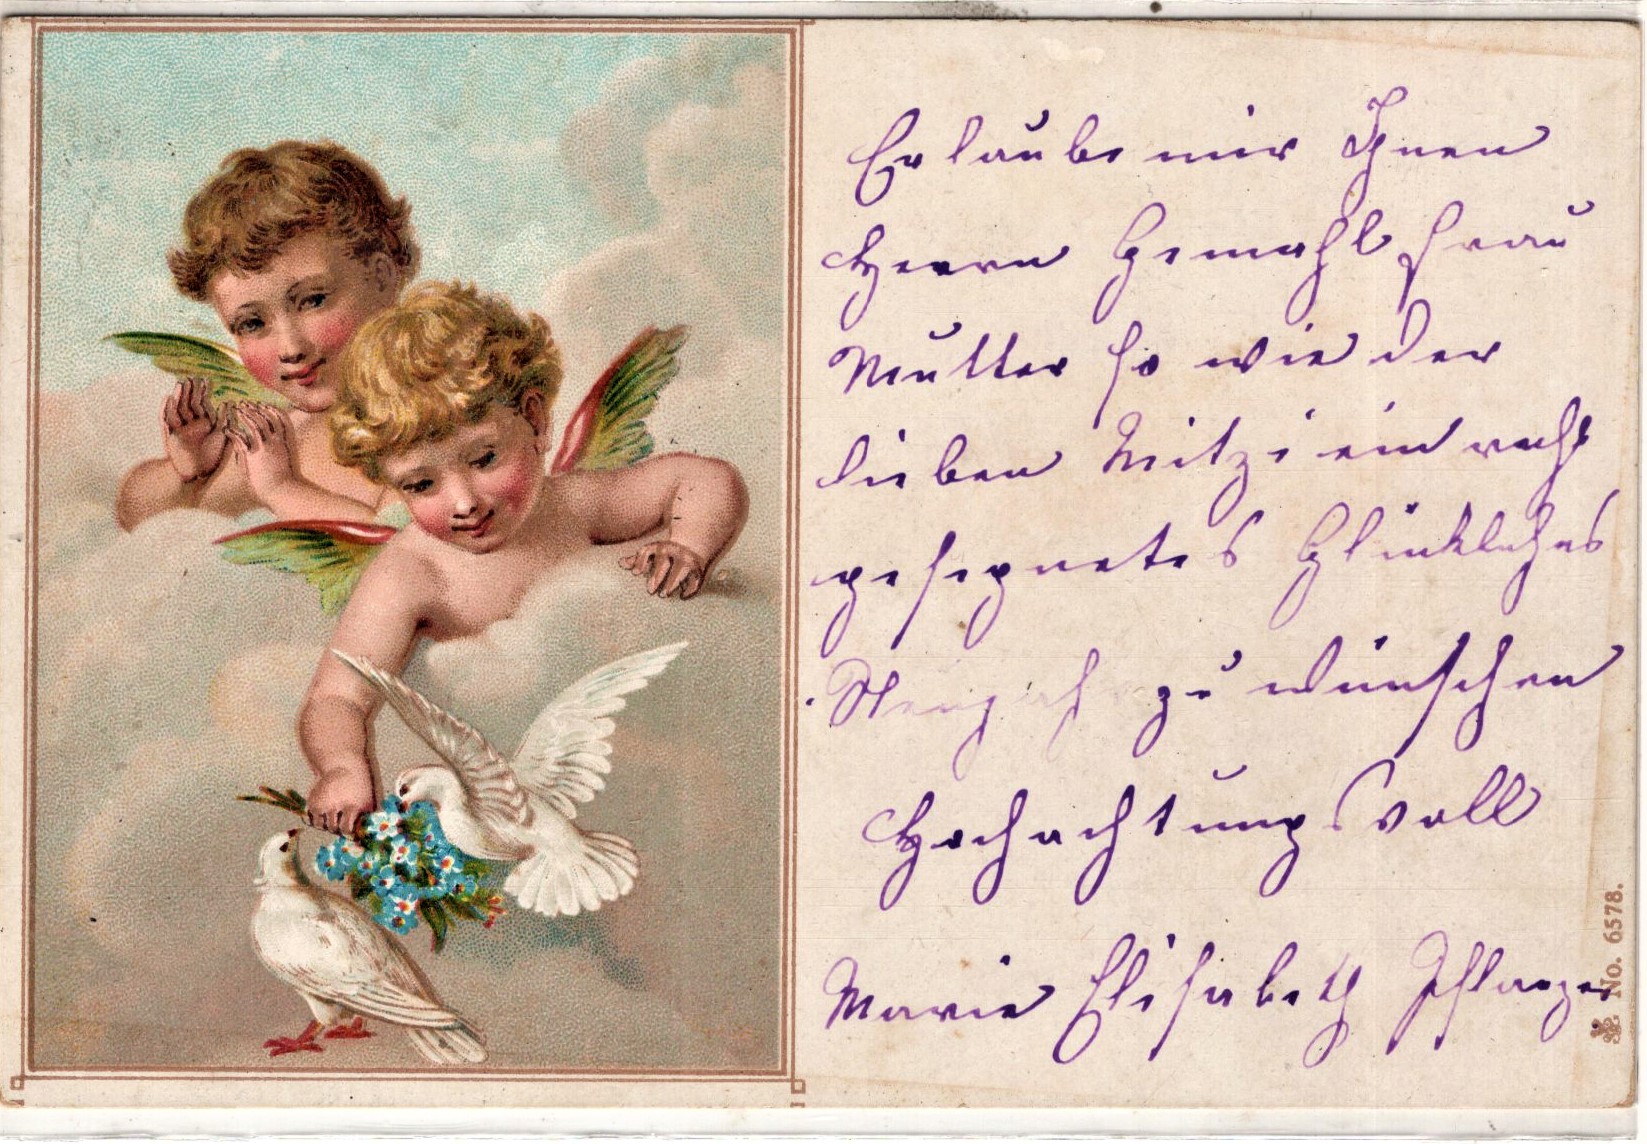 Erlaube mir Ihnen
Herrn Gemahl Frau
Mutter so wie der
lieben Mitzi ein recht
gesegnetes Glückliches
Neujahr zu wünschen
Hochachtungsvoll
Marie Elisabeth
No. 6578.